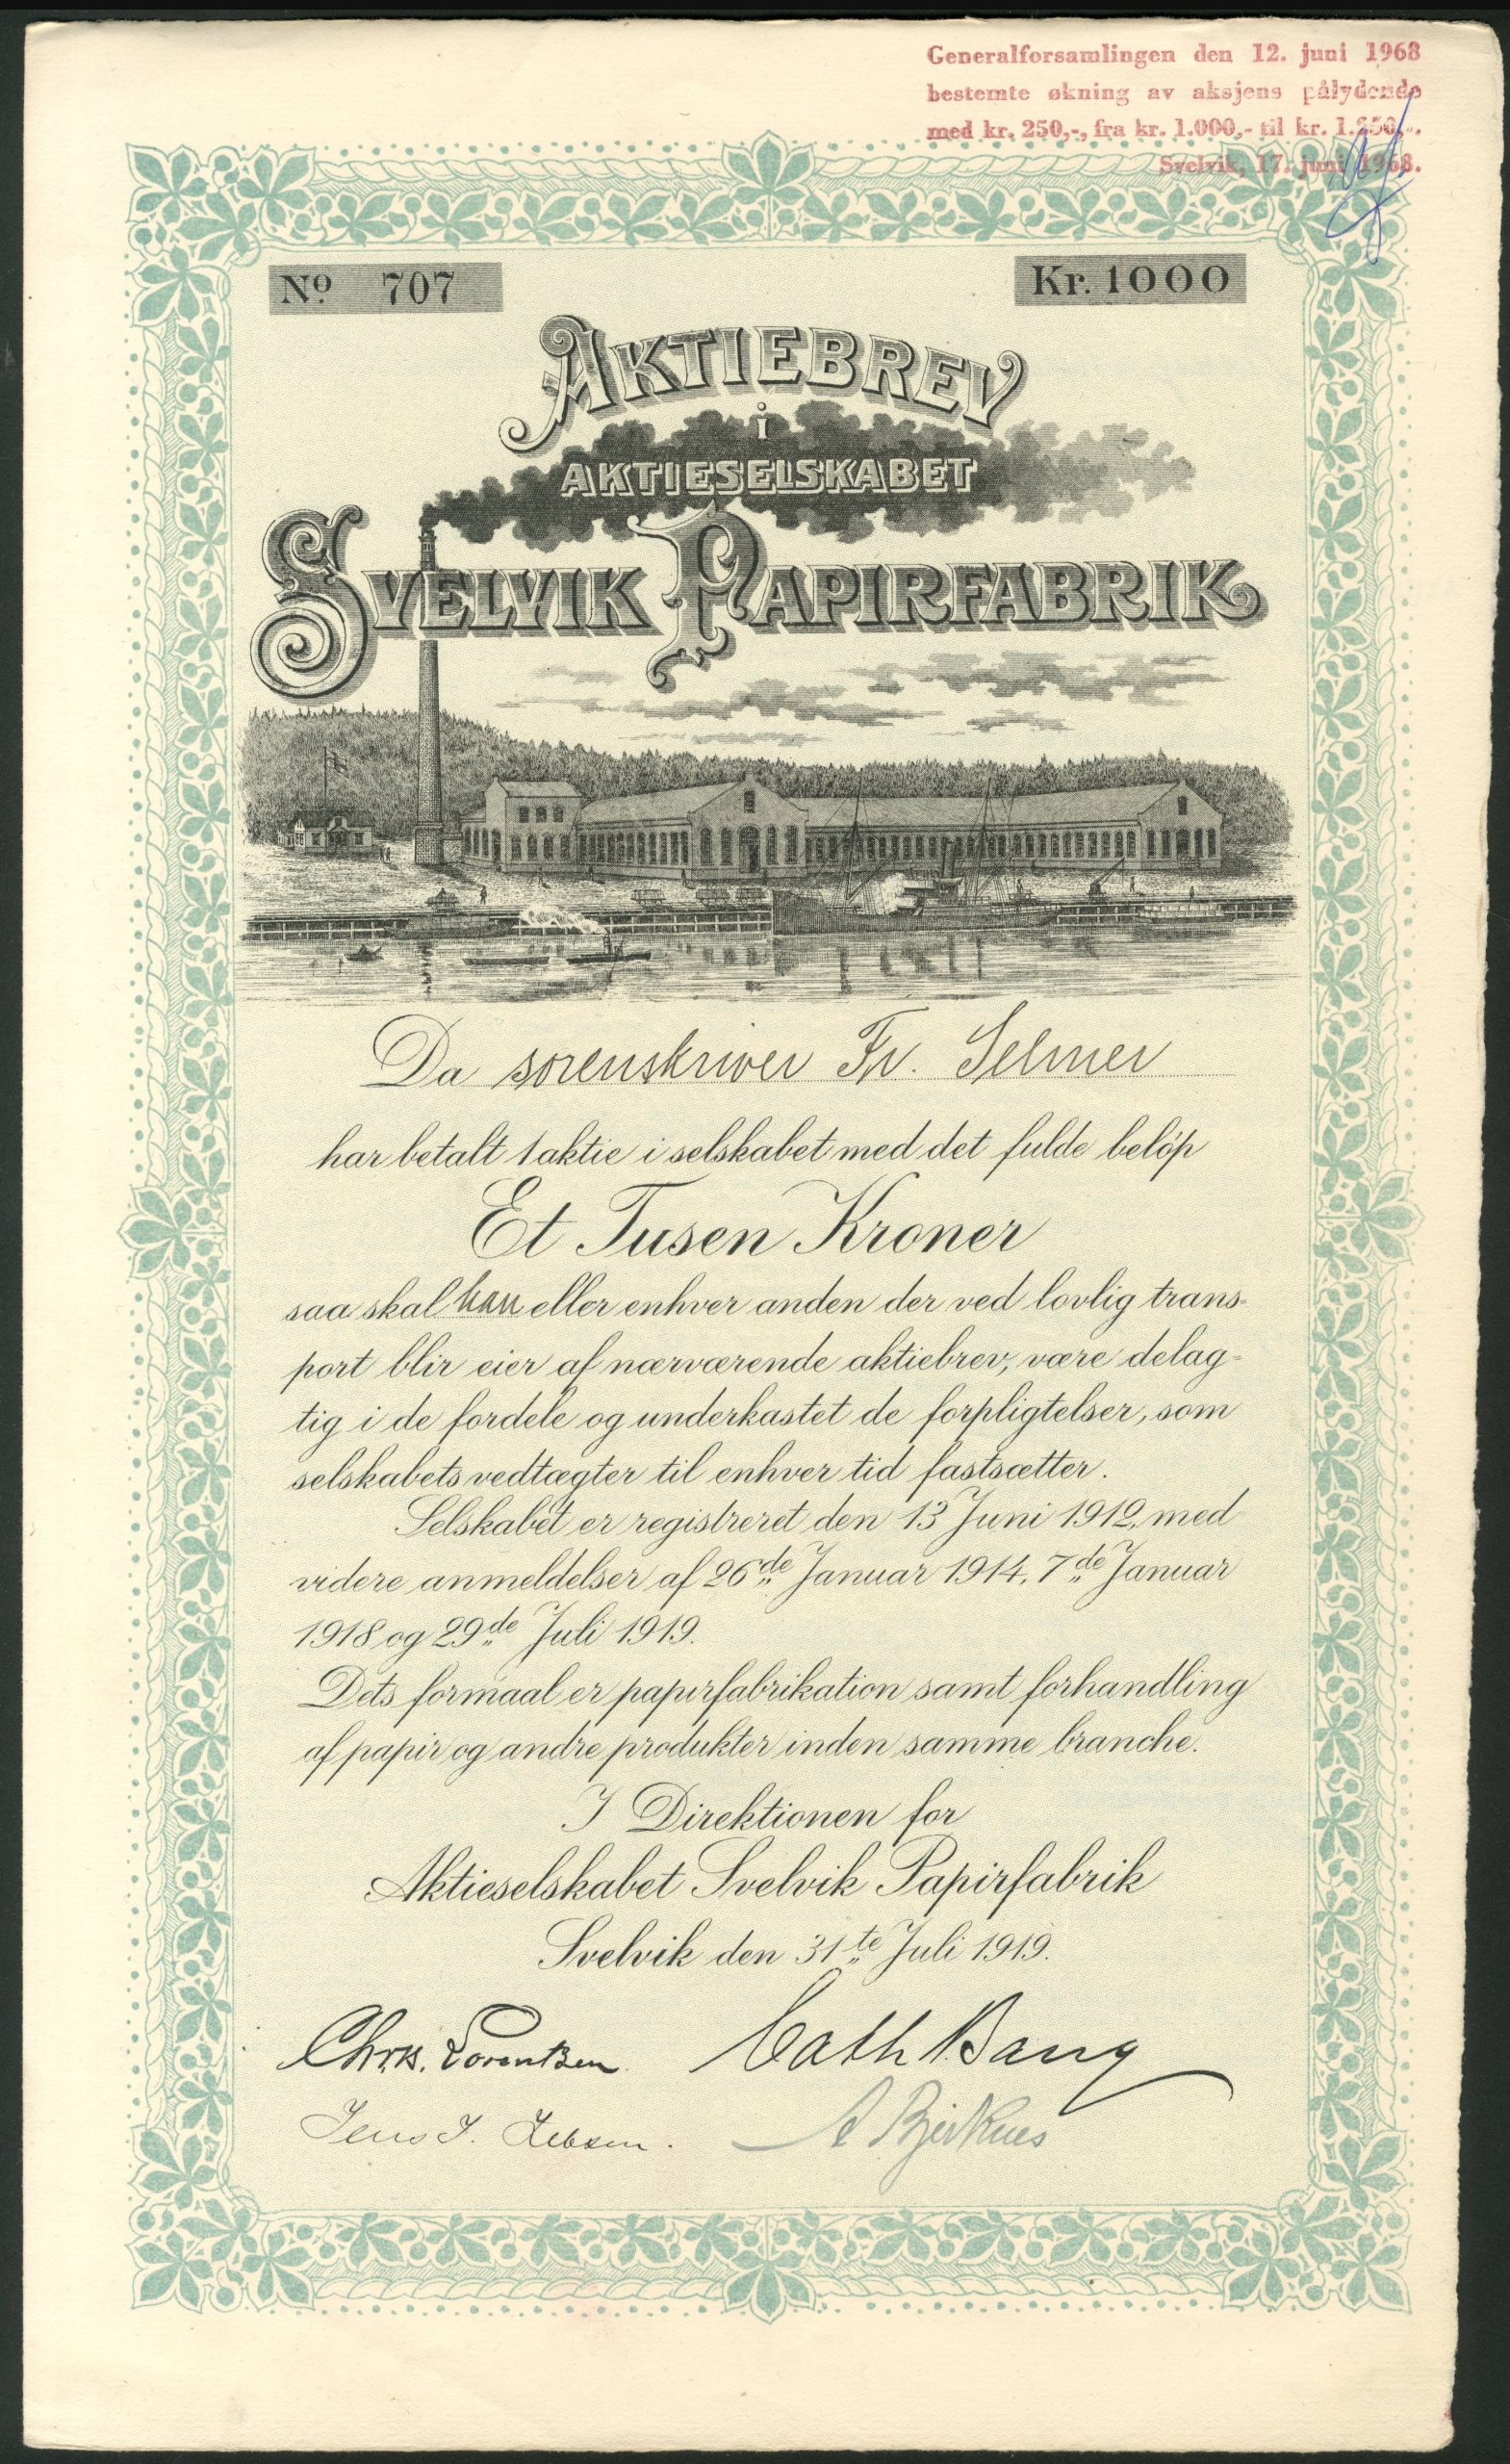 Generalforsamlingen den 12. juni 1968
bestemte økning av aksjens pålydende
med kr. 250,-, fra kr. 1.000,- til kr. 1.250,-.
Svelvik, 17. juni 1968.
No 707
Kr. 1000
AKTIEBREV
i
AKTIESELSKABET
SVELVIK PAPIRFABRIK
Da sorenskriver Fr. Selmer
har betalt 1 aktie i selskabet med det fulde beløp
Et Tusen Kroner
saa skal han eller enhver anden der ved lovlig trans-
port blir eier af nærværende aktiebrev, være delag-
tig i de fordele og underkastet de forpligtelser, som
selskabets vedtægter til enhver tid fastsætter.
Selskabet er registreret den 13 Juni 1912, med
videre anmeldelser af 26de Januar 1914, 7de Januar
1918 og 29de Juli 1919.
Dets formaal er papirfabrikation samt forhandling
af papir og andre produkter inden samme branche.
I Direktionen for
Aktieselskabet Svelvik Papirfabrik
Svelvik den 31te Juli 1919.
Chrs. Lorentzen Cath Bang
Jens J. Jebsen. A Bjerknes